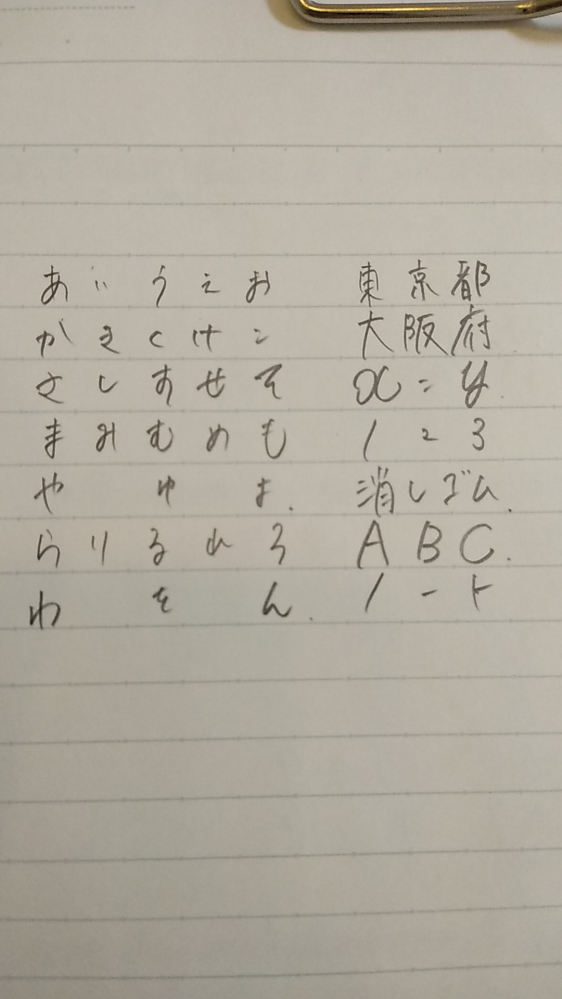 あいうえお 東京都
かきくけこ 大阪府
さしすせそ x=y.
まみむめも 123
やゆよ. 消しゴム.
らりるれろ ABC.
わをん. ノート